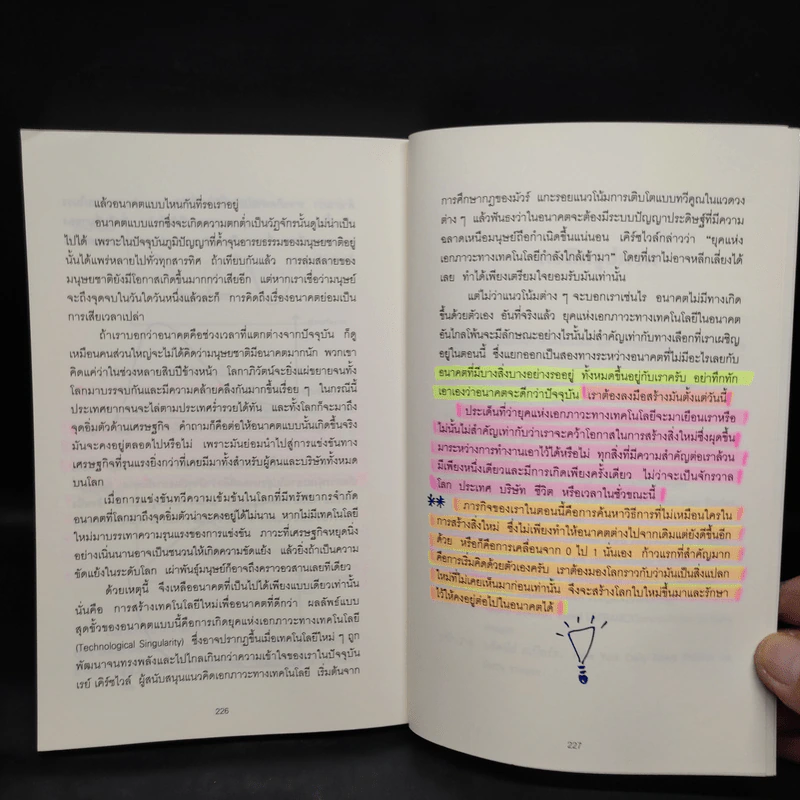 แล้วอนาคตแบบไหนกันที่รอเราอยู่
อนาคตแบบแรกซึ่งจะเกิดความตกต่ำเป็นวัฏจักรนั้นดูไม่น่าเป็น
ไปได้ เพราะในปัจจุบันภูมิปัญญาที่ค้ำจุนอารยธรรมของมนุษยชาติอยู่
นั้นได้แพร่หลายไปทั่วทุกสารทิศ ถ้าเทียบกันแล้ว การล่มสลายของ
มนุษยชาติยังมีโอกาสเกิดขึ้นมากกว่าเสียอีก แต่หากเราเชื่อว่ามนุษย์
จะถึงจุดจบในวันใดวันหนึ่งแล้วละก็ การคิดถึงเรื่องอนาคตย่อมเป็น
การเสียเวลาเปล่า
ถ้าเราบอกว่าอนาคตคือช่วงเวลาที่แตกต่างจากปัจจุบัน ก็ดู
เหมือนคนส่วนใหญ่จะไม่ได้คิดว่ามนุษยชาติมีอนาคตมากนัก พวกเขา
คิดแค่ว่าในช่วงหลายสิบปีข้างหน้า โลกาภิวัตน์จะยิ่งแผ่ขยายจนทั้ง
โลกมาบรรจบกันและมีความคล้ายคลึงกันมากขึ้นเรื่อย ๆ ในกรณีนี้
ประเทศยากจนจะไล่ตามประเทศร่ำรวยได้ทัน และทั้งโลกก็จะมาถึง
จุดอิ่มตัวด้านเศรษฐกิจ คำถามก็คือต่อให้อนาคตแบบนั้นเกิดขึ้นจริง
มันจะคงอยู่ตลอดไปหรือไม่ เพราะมันย่อมนำไปสู่การแข่งขันทาง
เศรษฐกิจที่รุนแรงยิ่งกว่าที่เคยมีมาทั้งสำหรับผู้คนและบริษัททั้งหมด
บนโลก
เมื่อการแข่งขันทวีความเข้มข้นในโลกที่มีทรัพยากรจำกัด
อนาคตที่โลกมาถึงจุดอิ่มตัวน่าจะคงอยู่ได้ไม่นาน หากไม่มีเทคโนโลยี
ใหม่มาบรรเทาความรุนแรงของการแข่งขัน ภาวะที่เศรษฐกิจหยุดนิ่ง
อย่างเนิ่นนานอาจเป็นชนวนให้เกิดความขัดแย้ง แล้วยิ่งถ้าเป็นความ
ขัดแย้งในระดับโลก เผ่าพันธุ์มนุษย์ก็อาจถึงคราวอวสานเลยทีเดียว
ด้วยเหตุนี้ จึงเหลืออนาคตที่เป็นไปได้เพียงแบบเดียวเท่านั้น
นั่นคือ การสร้างเทคโนโลยีใหม่เพื่ออนาคตที่ดีกว่า ผลลัพธ์แบบ
สุดขั้วของอนาคตแบบนี้คือการเกิดยุคแห่งเอกภาวะทางเทคโนโลยี
(Technological Singularity) ซึ่งอาจปรากฏขึ้นเมื่อเทคโนโลยีใหม่ ๆ ถูก
พัฒนาจนทรงพลังและไปไกลเกินกว่าความเข้าใจของเราในปัจจุบัน
เรย์ เคิร์ซไวล์ ผู้สนับสนุนแนวคิดเอกภาวะทางเทคโนโลยี เริ่มต้นจาก
226
การศึกษากฎของมัวร์ แกะรอยแนวโน้มการเติบโตแบบทวีคูณในแวดวง
ต่าง ๆ แล้วฟันธงว่าในอนาคตจะต้องมีระบบปัญญาประดิษฐ์ที่มีความ
ฉลาดเหนือมนุษย์ถือกำเนิดขึ้นแน่นอน เคิร์ซไวล์กล่าวว่า “ยุคแห่ง
เอกภาวะทางเทคโนโลยีกำลังใกล้เข้ามา” โดยที่เราไม่อาจหลีกเลี่ยงได้
เลย ทำได้เพียงเตรียมใจยอมรับมันเท่านั้น
แต่ไม่ว่าแนวโน้มต่าง ๆ จะบอกเราเช่นไร อนาคตไม่มีทางเกิด
ขึ้นด้วยตัวเอง อันที่จริงแล้ว ยุคแห่งเอกภาวะทางเทคโนโลยีในอนาคต
อันไกลโพ้นจะมีลักษณะอย่างไรนั้นไม่สำคัญเท่ากับทางเลือกที่เราเผชิญ
อยู่ในตอนนี้ ซึ่งแยกออกเป็นสองทางระหว่างอนาคตที่ไม่มีอะไรเลยกับ
อนาคตที่มีบางสิ่งบางอย่างรออยู่ ทั้งหมดขึ้นอยู่กับเราครับ อย่าทึกทัก
เอาเองว่าอนาคตจะดีกว่าปัจจุบัน เราต้องลงมือสร้างมันตั้งแต่วันนี้
ประเด็นที่ว่ายุคแห่งเอกภาวะทางเทคโนโลยีจะมาเยือนเราหรือ
ไม่นั้นไม่สำคัญเท่ากับว่าเราจะคว้าโอกาสในการสร้างสิ่งใหม่ซึ่งผุดขึ้น
มาระหว่างการทำงานเอาไว้ได้หรือไม่ ทุกสิ่งที่มีความสำคัญต่อเราล้วน
มีเพียงหนึ่งเดียวและมีการเกิดเพียงครั้งเดียว ไม่ว่าจะเป็นจักรวาล
โลก ประเทศ บริษัท ชีวิต หรือเวลาในชั่วขณะนี้
** ภารกิจของเราในตอนนี้คือการค้นหาวิธีการที่ไม่เหมือนใครใน
การสร้างสิ่งใหม่ ซึ่งไม่เพียงทำให้อนาคตต่างไปจากเดิมแต่ยังดีขึ้นอีก
ด้วย หรือก็คือการเคลื่อนจาก 0 ไป 1 นั่นเอง ก้าวแรกที่สำคัญมาก
คือการเริ่มคิดด้วยตัวเองครับ เราต้องมองโลกราวกับว่ามันเป็นสิ่งแปลก
ใหม่ที่ไม่เคยเห็นมาก่อนเท่านั้น จึงจะสร้างโลกใบใหม่ขึ้นมาและรักษา
ไว้ให้คงอยู่ต่อไปในอนาคตได้
227